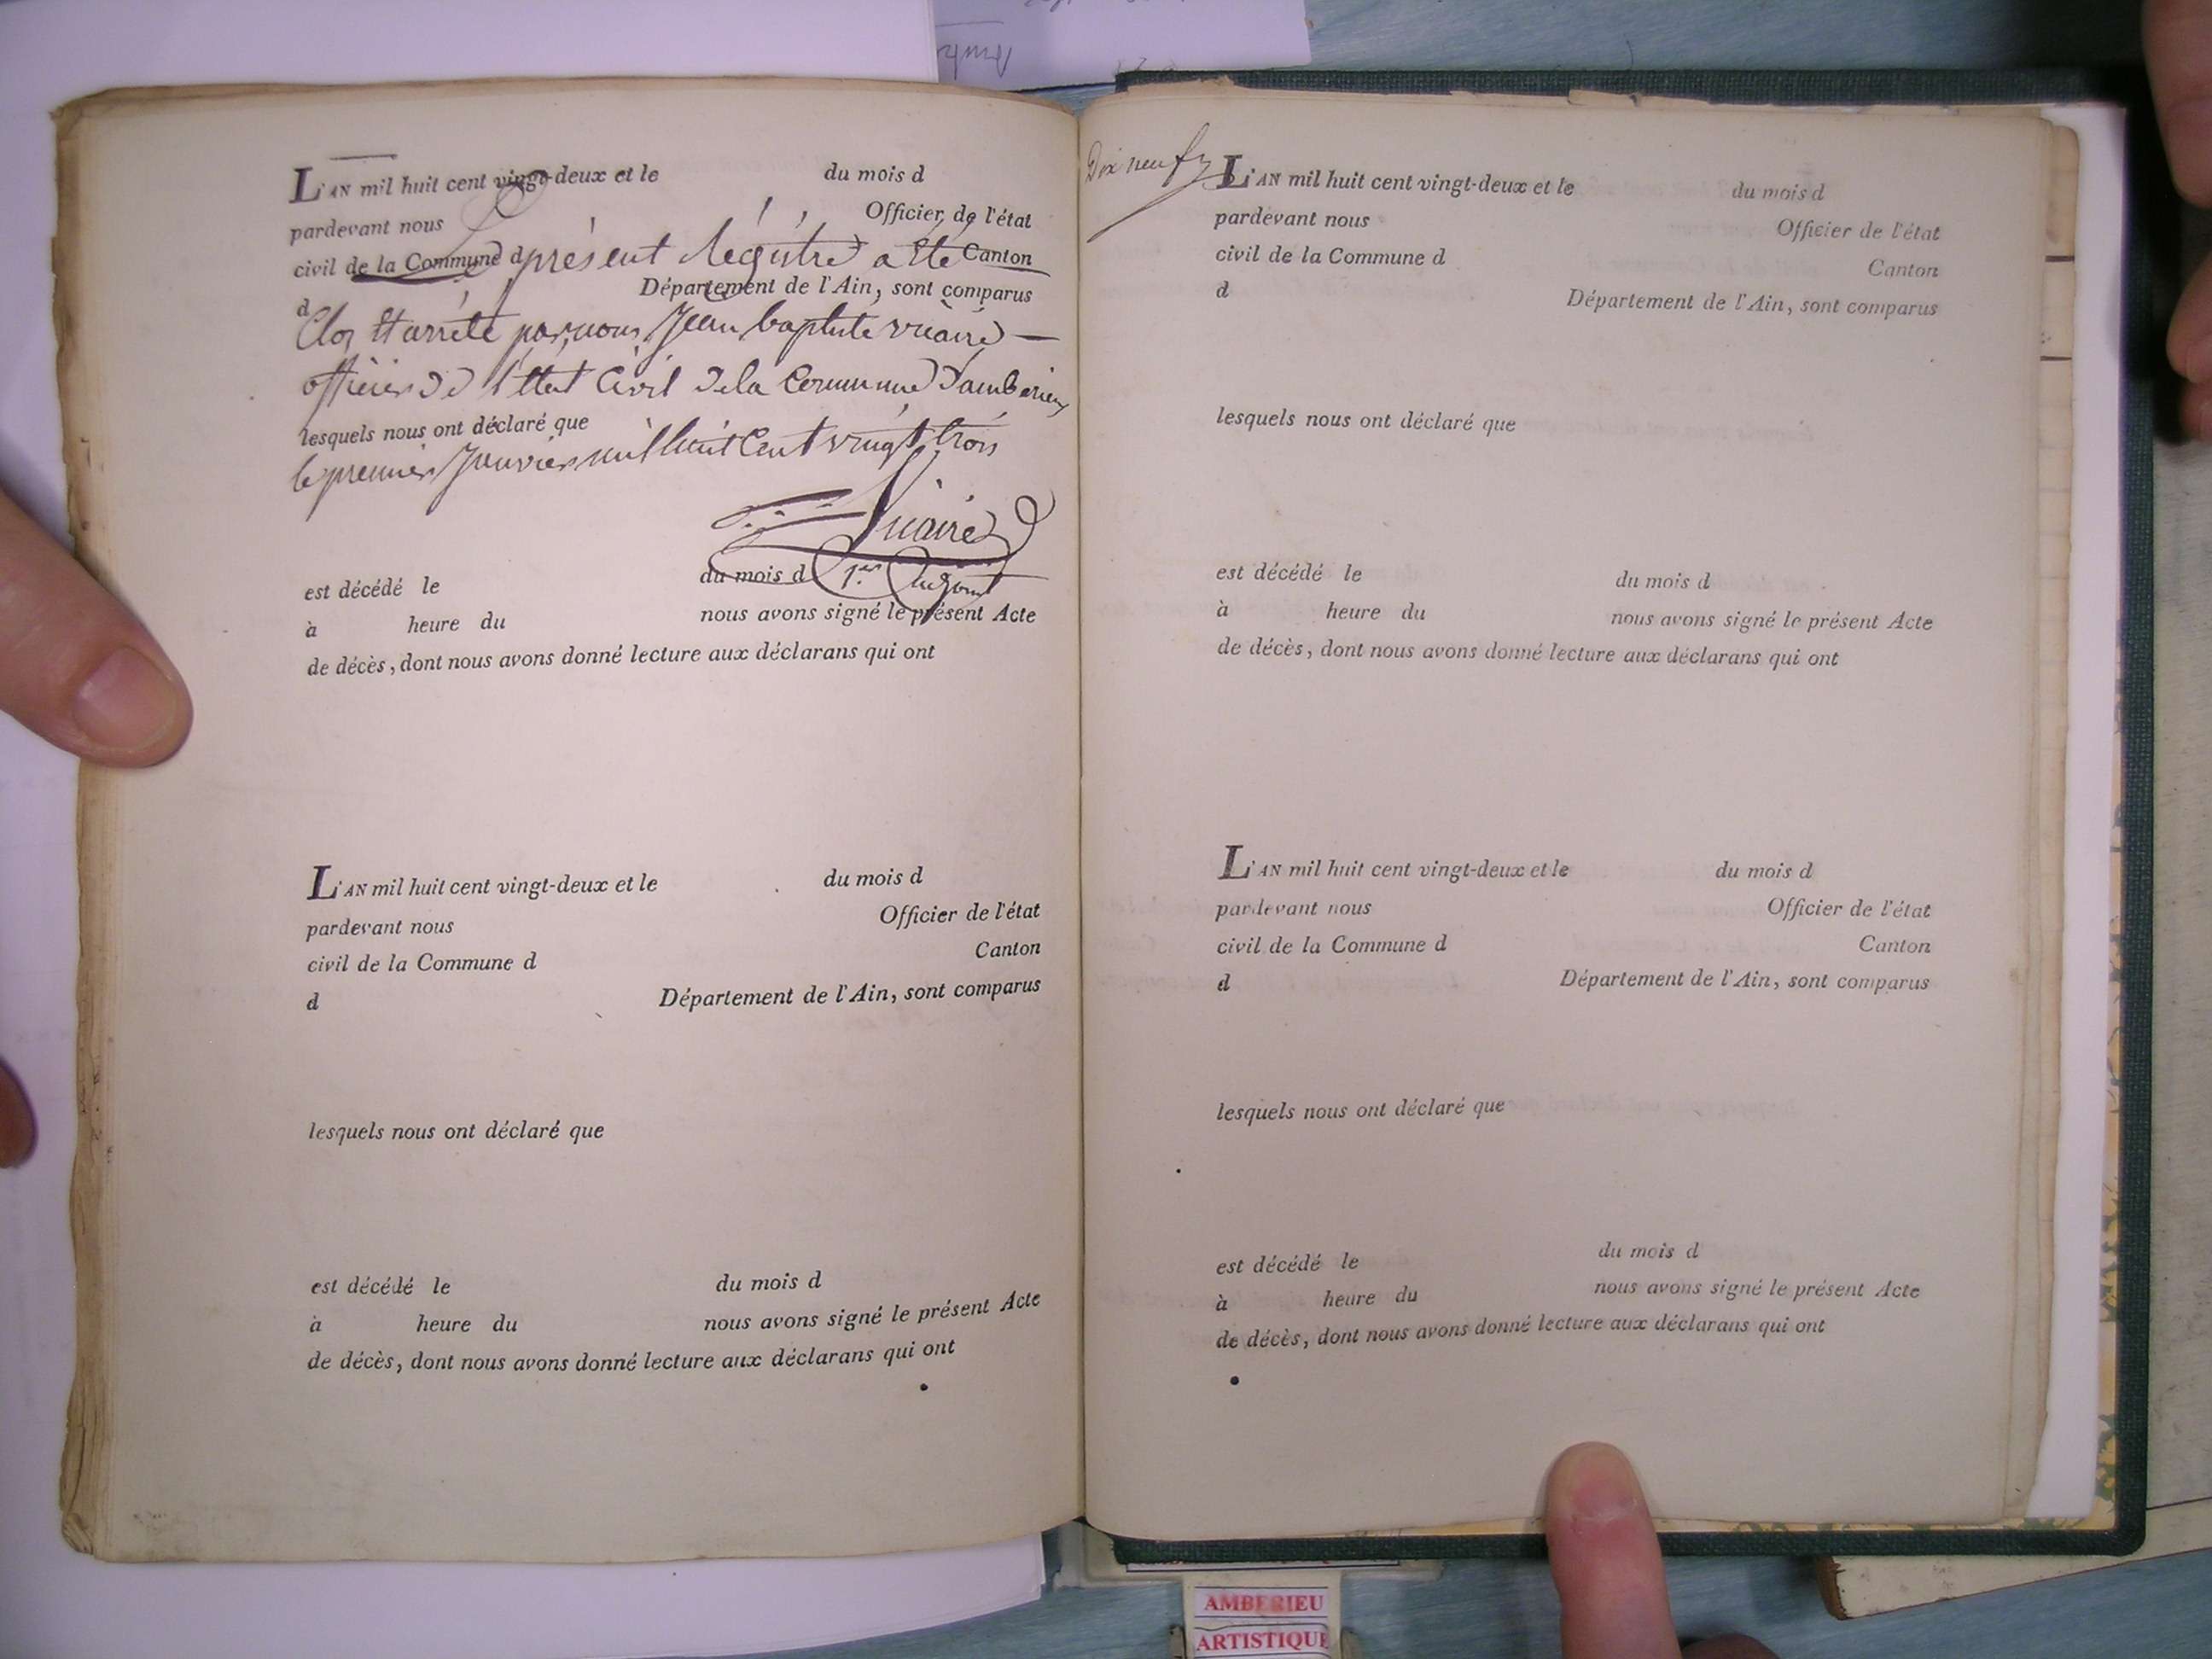 L'AN mil huit cent vingt-deux et le du mois d
pardevant nous Officier de l'état
civil de la Commune d Canton
Le présent Régistre a été
d Département de l'Ain, sont comparus
Clos et arrété par nous Jean baptiste vicaire —
officier de l'état Civil de la Commune d'amberieux
lesquels nous ont déclaré que
le premier Janvier mil huit Cent vingt trois
Vicaire
1.er adjoint
est décédé le du mois d
à heure du nous avons signé le présent Acte
de décès, dont nous avons donné lecture aux déclarans qui ont
L'AN mil huit cent vingt-deux et le du mois d
pardevant nous Officier de l'état
civil de la Commune d Canton
d Département de l'Ain, sont comparus
lesquels nous ont déclaré que
est décédé le du mois d
à heure du nous avons signé le présent Acte
de décès, dont nous avons donné lecture aux déclarans qui ont
Dix neuf
L'AN mil huit cent vingt-deux et le du mois d
pardevant nous Officier de l'état
civil de la Commune d Canton
d Département de l'Ain, sont comparus
lesquels nous ont déclaré que
est décédé le du mois d
à heure du nous avons signé le présent Acte
de décès, dont nous avons donné lecture aux déclarans qui ont
L'AN mil huit cent vingt-deux et le du mois d
pardevant nous Officier de l'état
civil de la Commune d Canton
d Département de l'Ain, sont comparus
lesquels nous ont déclaré que
est décédé le du mois d
à heure du nous avons signé le présent Acte
de décès, dont nous avons donné lecture aux déclarans qui ont
AMBERIEU
ARTISTIQUE